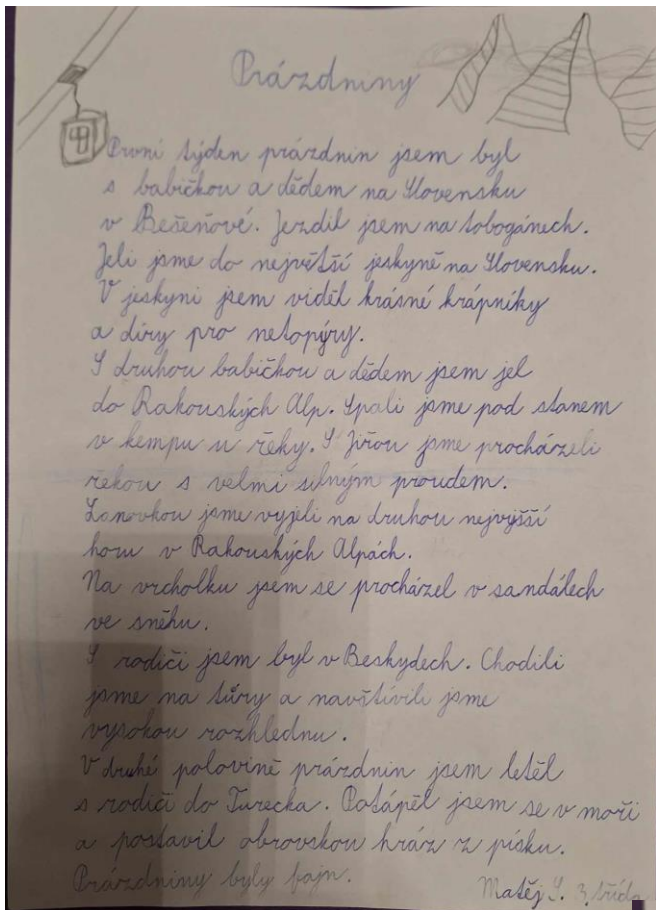 Prázdniny
První týden prázdnin jsem byl
s babičkou a dědem na Slovensku
v Bešeňové. Jezdil jsem na tobogánech.
Jeli jsme do největší jeskyně na Slovensku.
V jeskyni jsem viděl krásné krápníky
a díry pro netopýry.
S druhou babičkou a dědem jsem jel
do Rakouských Alp. Spali jsme pod stanem
v kempu u řéky. S Jiřou jsme procházeli
řekou s velmi silným proudem.
Lanovkou jsme vyjeli na druhou nejvyšší
horu v Rakouských Alpách.
Na vrcholku jsem se procházel v sandálech
ve sněhu.
S rodiči jsem byl v Beskydech. Chodili
jsme na tůry a navštívili jsme
vysokou rozhlednu.
V druhé polovině prázdnin jsem letěl
s rodiči do Turecka. Potápěl jsem se v moři
a postavil obrovskou hráz z písku.
Prázdniny byly fajn.
Matěj S. 3. třída